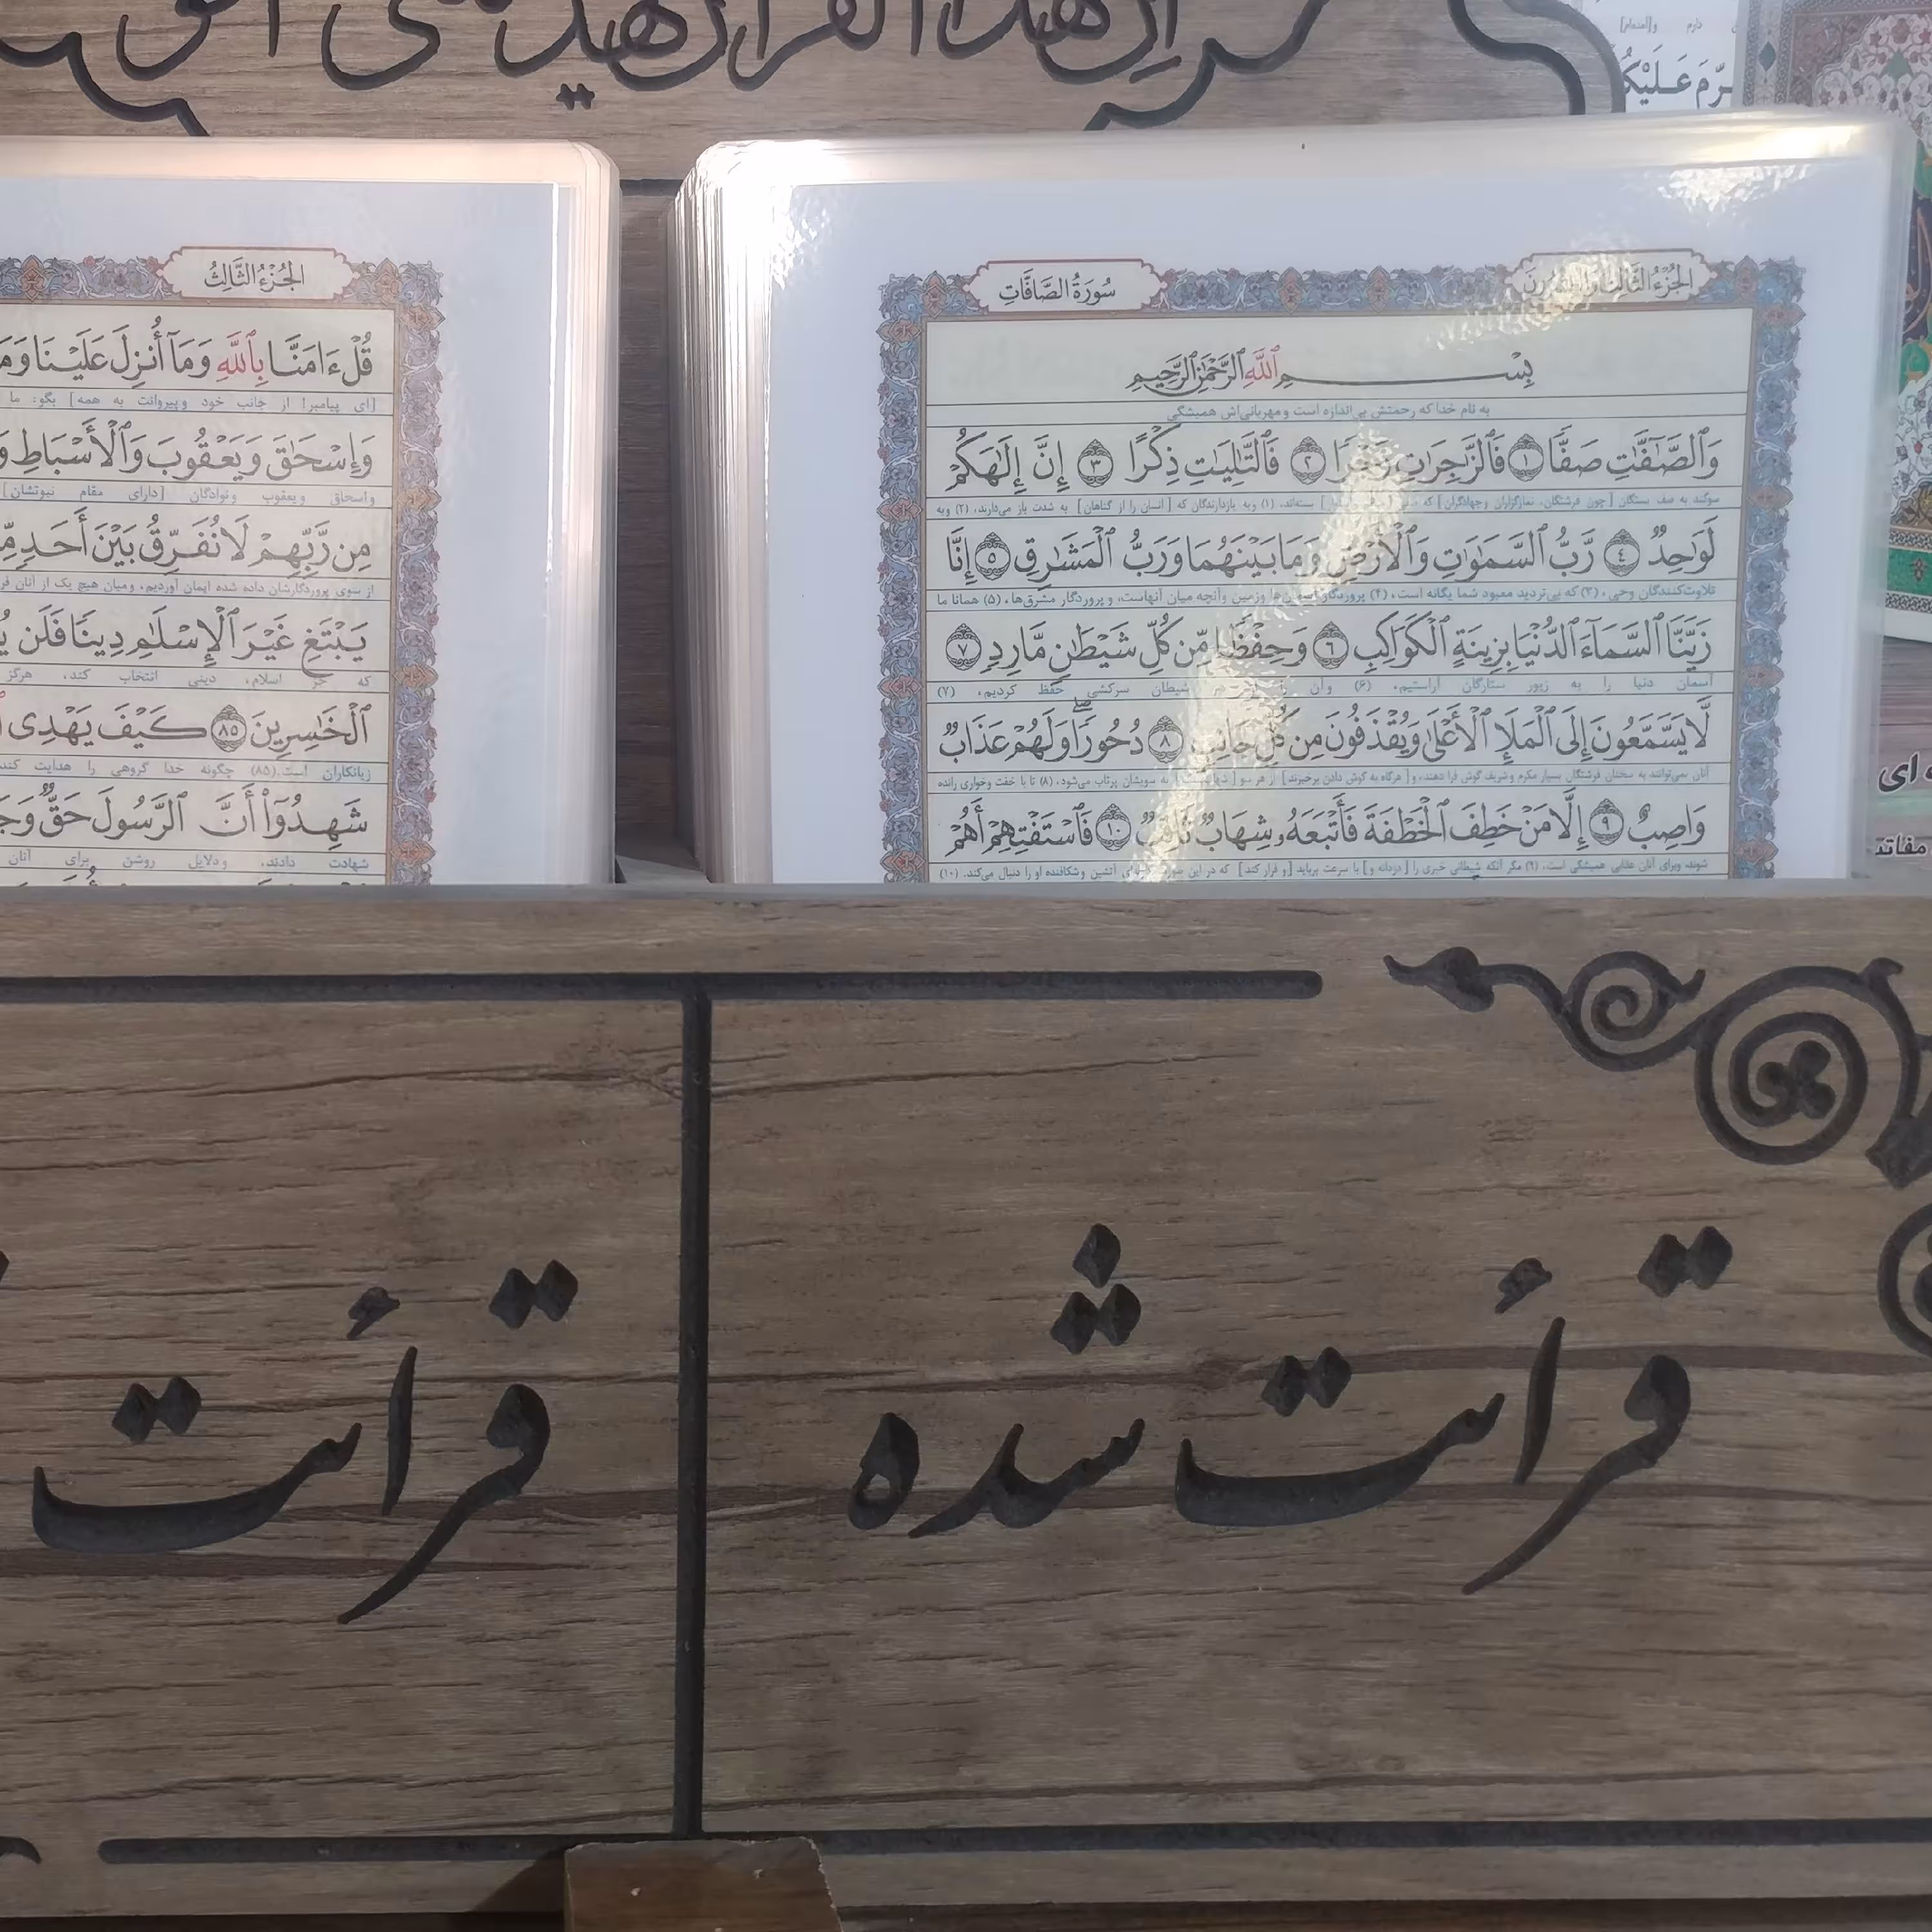 إن هذا القرآن يهدی
رّم عَلَيْكُ
الجُزءُ الثَّالِثُ وَالعِشرُونَ
سُورَةُ الصَّافَّاتِ
بِسْمِ ٱللَّهِ ٱلرَّحْمَٰنِ ٱلرَّحِيمِ
به نام خدا که رحمتش بی‌اندازه است و مهربانی‌اش همیشگی
وَٱلصَّٰٓفَّٰتِ صَفًّا ١ فَٱلزَّٰجِرَٰتِ زَجْرًا ٢ فَٱلتَّٰلِيَٰتِ ذِكْرًا ٣ إِنَّ إِلَٰهَكُمْ
سوگند به صف بستگان [چون فرشتگان، نمازگزاران و جهادگران] که بسته‌اند، (۱) و به بازدارندگان که [انسان را از گناهان] به شدت باز می‌دارند، (۲) و به
لَوَٰحِدٌ ٤ رَّبُّ ٱلسَّمَٰوَٰتِ وَٱلْأَرْضِ وَمَا بَيْنَهُمَا وَرَبُّ ٱلْمَشَٰرِقِ ٥ إِنَّا
تلاوت‌کنندگان وحی، (۳) که بی‌تردید معبود شما یگانه است، (۴) پروردگار آسمان‌ها و زمین و آنچه میان آنهاست، و پروردگار مشرق‌ها، (۵) همانا ما
زَيَّنَّا ٱلسَّمَآءَ ٱلدُّنْيَا بِزِينَةٍ ٱلْكَوَاكِبِ ٦ وَحِفْظًا مِّن كُلِّ شَيْطَٰنٍ مَّارِدٍ ٧
آسمان دنیا را به زیور ستارگان آراستیم، (۶) و آن را از هر شیطان سرکشی حفظ کردیم، (۷)
لَّا يَسَّمَّعُونَ إِلَى ٱلْمَلَإِ ٱلْأَعْلَىٰ وَيُقْذَفُونَ مِن كُلِّ جَانِبٍ ٨ دُحُورًا ۖ وَلَهُمْ عَذَابٌ
آنان نمی‌توانند به سخنان فرشتگان بسیار مکرم و شریف گوش فرا دهند، و [هرگاه به گوش دادن برخیزند] از هر سو به سویشان پرتاب می‌شود، (۸) تا با خفت و خواری رانده
وَاصِبٌ ٩ إِلَّا مَنْ خَطِفَ ٱلْخَطْفَةَ فَأَتْبَعَهُۥ شِهَابٌ ثَاقِبٌ ١٠ فَٱسْتَفْتِهِمْ أَهُمْ
شوند و برای آنان عذابی همیشگی است. (۹) مگر آنکه شیطانی خبری را [دزدانه و] با سرعت برباید [و فرار کند] که در این صورت آتشین و شکافنده او را دنبال می‌کند. (۱۰)
الجُزءُ الثَّالِثُ
قُلْ ءَامَنَّا بِٱللَّهِ وَمَآ أُنزِلَ عَلَيْنَا وَمَ
[ای پیامبر! از جانب خود و پیروانت به همه] بگو: ما
وَإِسْحَٰقَ وَيَعْقُوبَ وَٱلْأَسْبَاطِ وَ
و اسحاق و یعقوب و نوادگان [دارای مقام نبوتشان]
مِن رَّبِّهِمْ لَا نُفَرِّقُ بَيْنَ أَحَدٍ مِّ
از سوی پروردگارشان داده شده ایمان آوردیم، و میان هیچ یک از آنان فر
يَبْتَغِ غَيْرَ ٱلْإِسْلَٰمِ دِينًا فَلَن يُ
که جز اسلام، دینی انتخاب کند، هرگز
ٱلْخَٰسِرِينَ ٨٥ كَيْفَ يَهْدِى
زیانکاران است. (۸۵) چگونه خدا گروهی را هدایت کند
شَهِدُوٓا۟ أَنَّ ٱلرَّسُولَ حَقٌّ وَجَ
شهادت دادند، و دلایل روشن برای آنان
ای
مفاتد
قرأت شده
قرأت